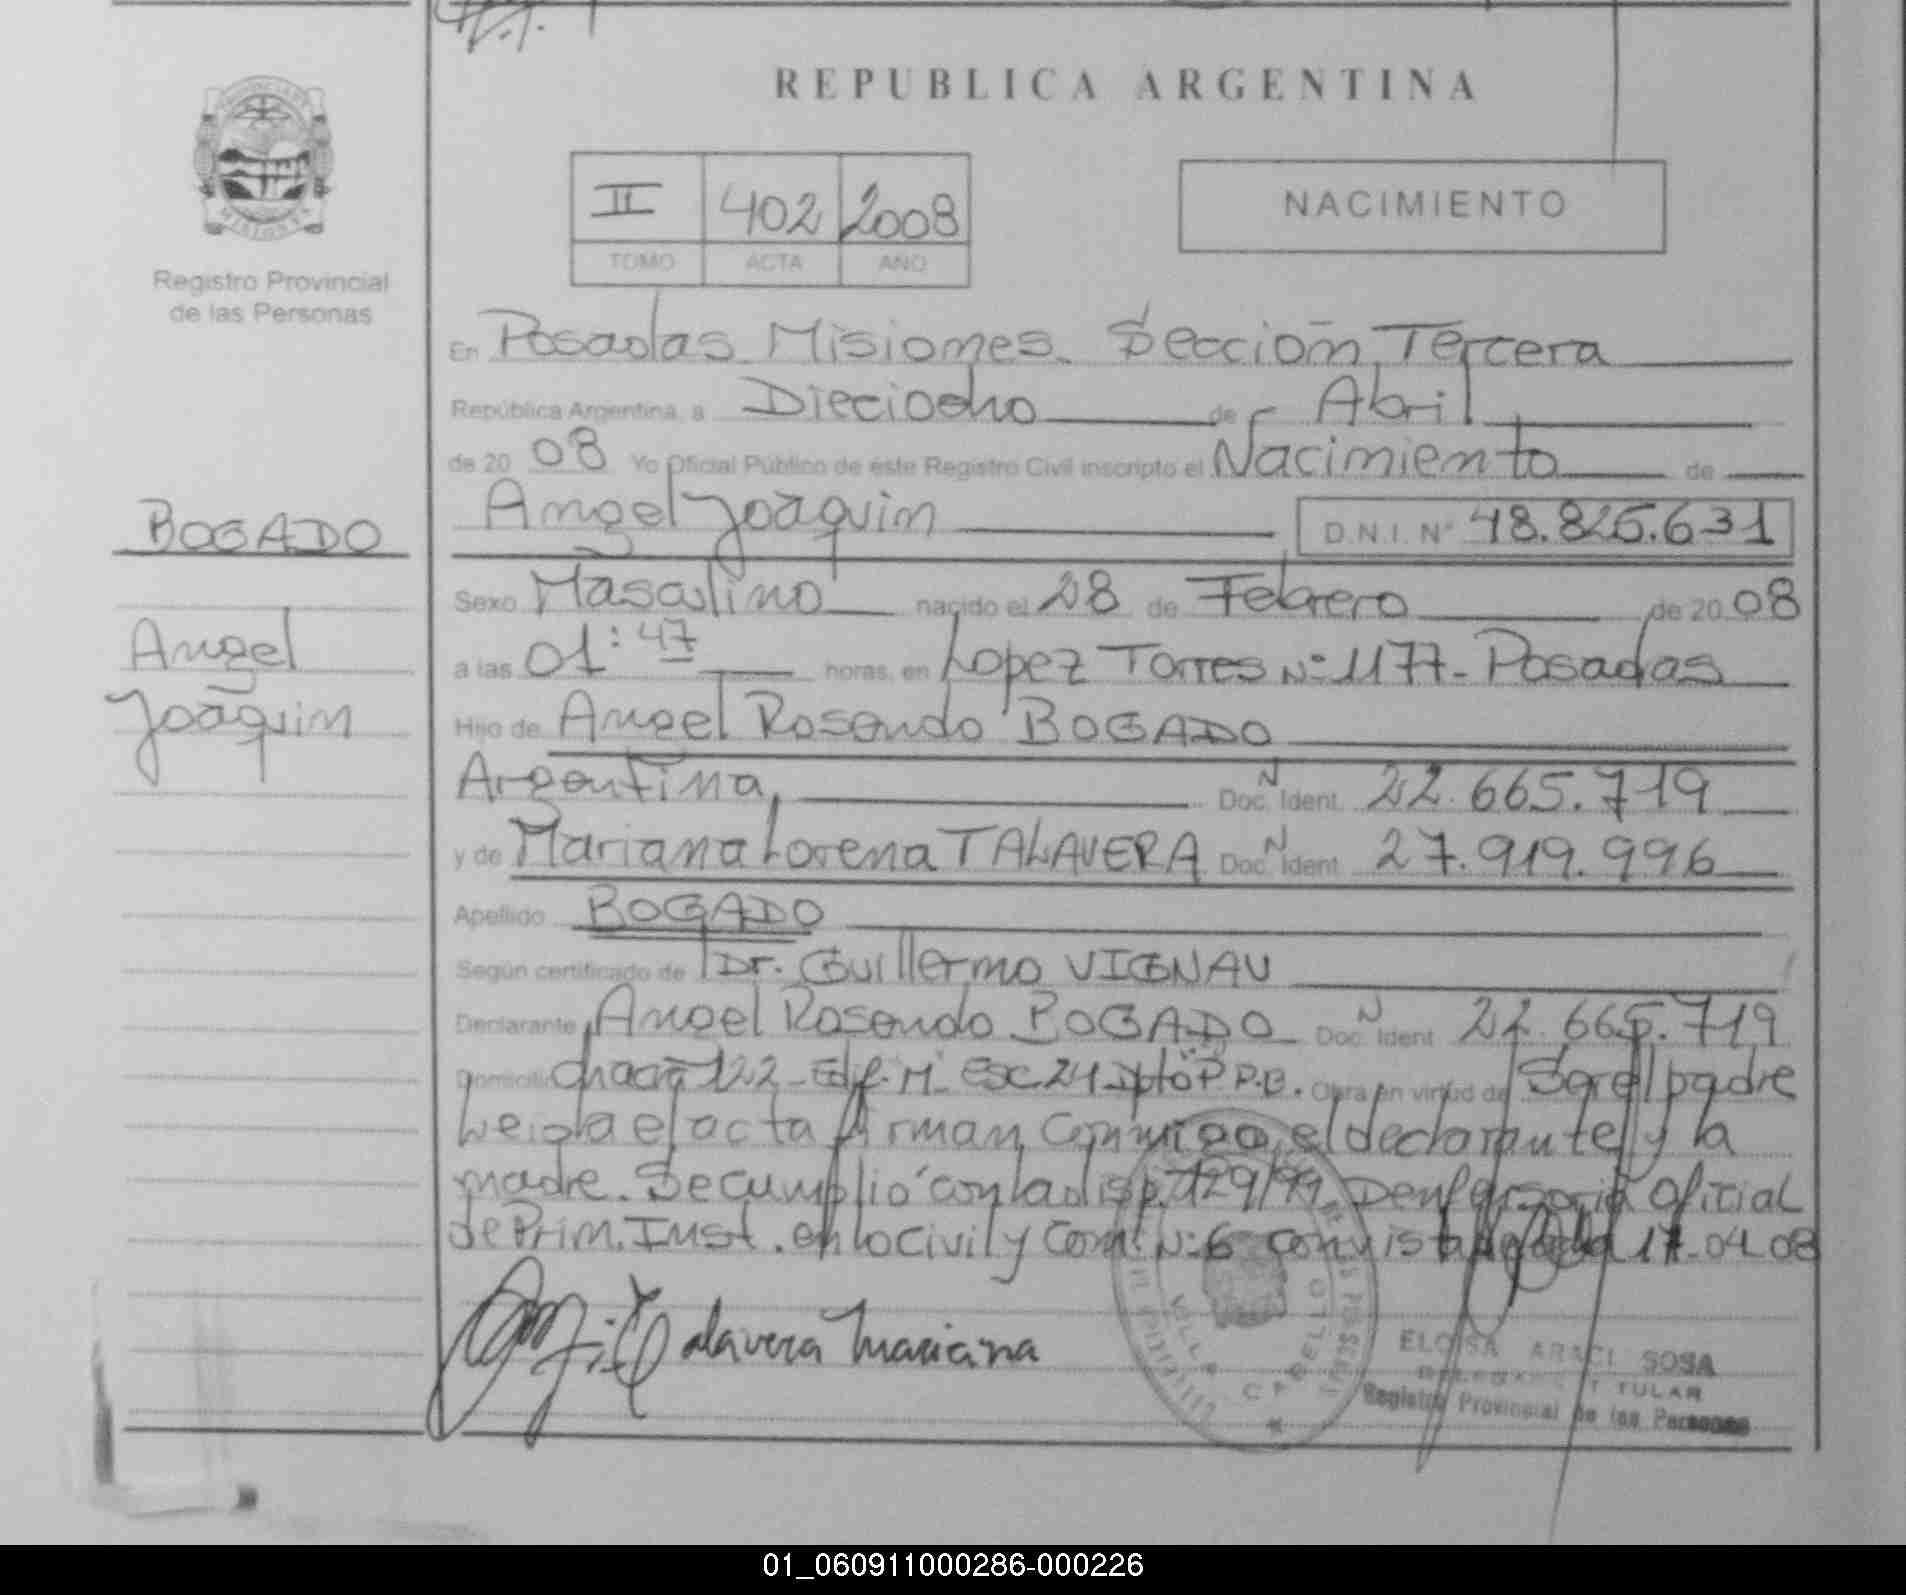 REPUBLICA ARGENTINA
II 402 2008
TOMO ACTA AÑO
NACIMIENTO
Registro Provincial
de las Personas
En Posadas Misiones Sección Tercera
República Argentina, a Dieciocho de Abril
de 20 08 Yo Oficial Público de éste Registro Civil inscripto el Nacimiento de
BOGADO
Angel Joaquin D.N.I. Nº 48.825.631
Sexo Masculino nacido el 28 de Febrero de 20 08
Angel
Joaquin
a las 01:47 horas, en Lopez Torres Nº 1177- Posadas
Hijo de Angel Rosendo BOGADO
Argentina, N Doc. Ident. 22.665.719
y de Mariana Lorena TALAVERA N Doc. Ident. 27.919.996
Apellido BOGADO
Según certificado de Dr. Guillermo VIGNAU
Declarante Angel Rosendo BOGADO N Doc. Ident 22.665.719
Domicilio 122- Edif. M- Esc 24 Dpto P P.B. Obra en virtud de Ser el padre
Leida el acta firman conmigo el declarante y la
madre. Se cumplió con la disp. 729/99 Oficial
de Prim. Inst. en lo Civil y Com. Nº 6 con vista 17-04 08
Talavera Mariana
VILLA CABELLO
ELOISA ARACI SOSA
TITULAR
Registro Provincial de las Personas
01_060911000286-000226